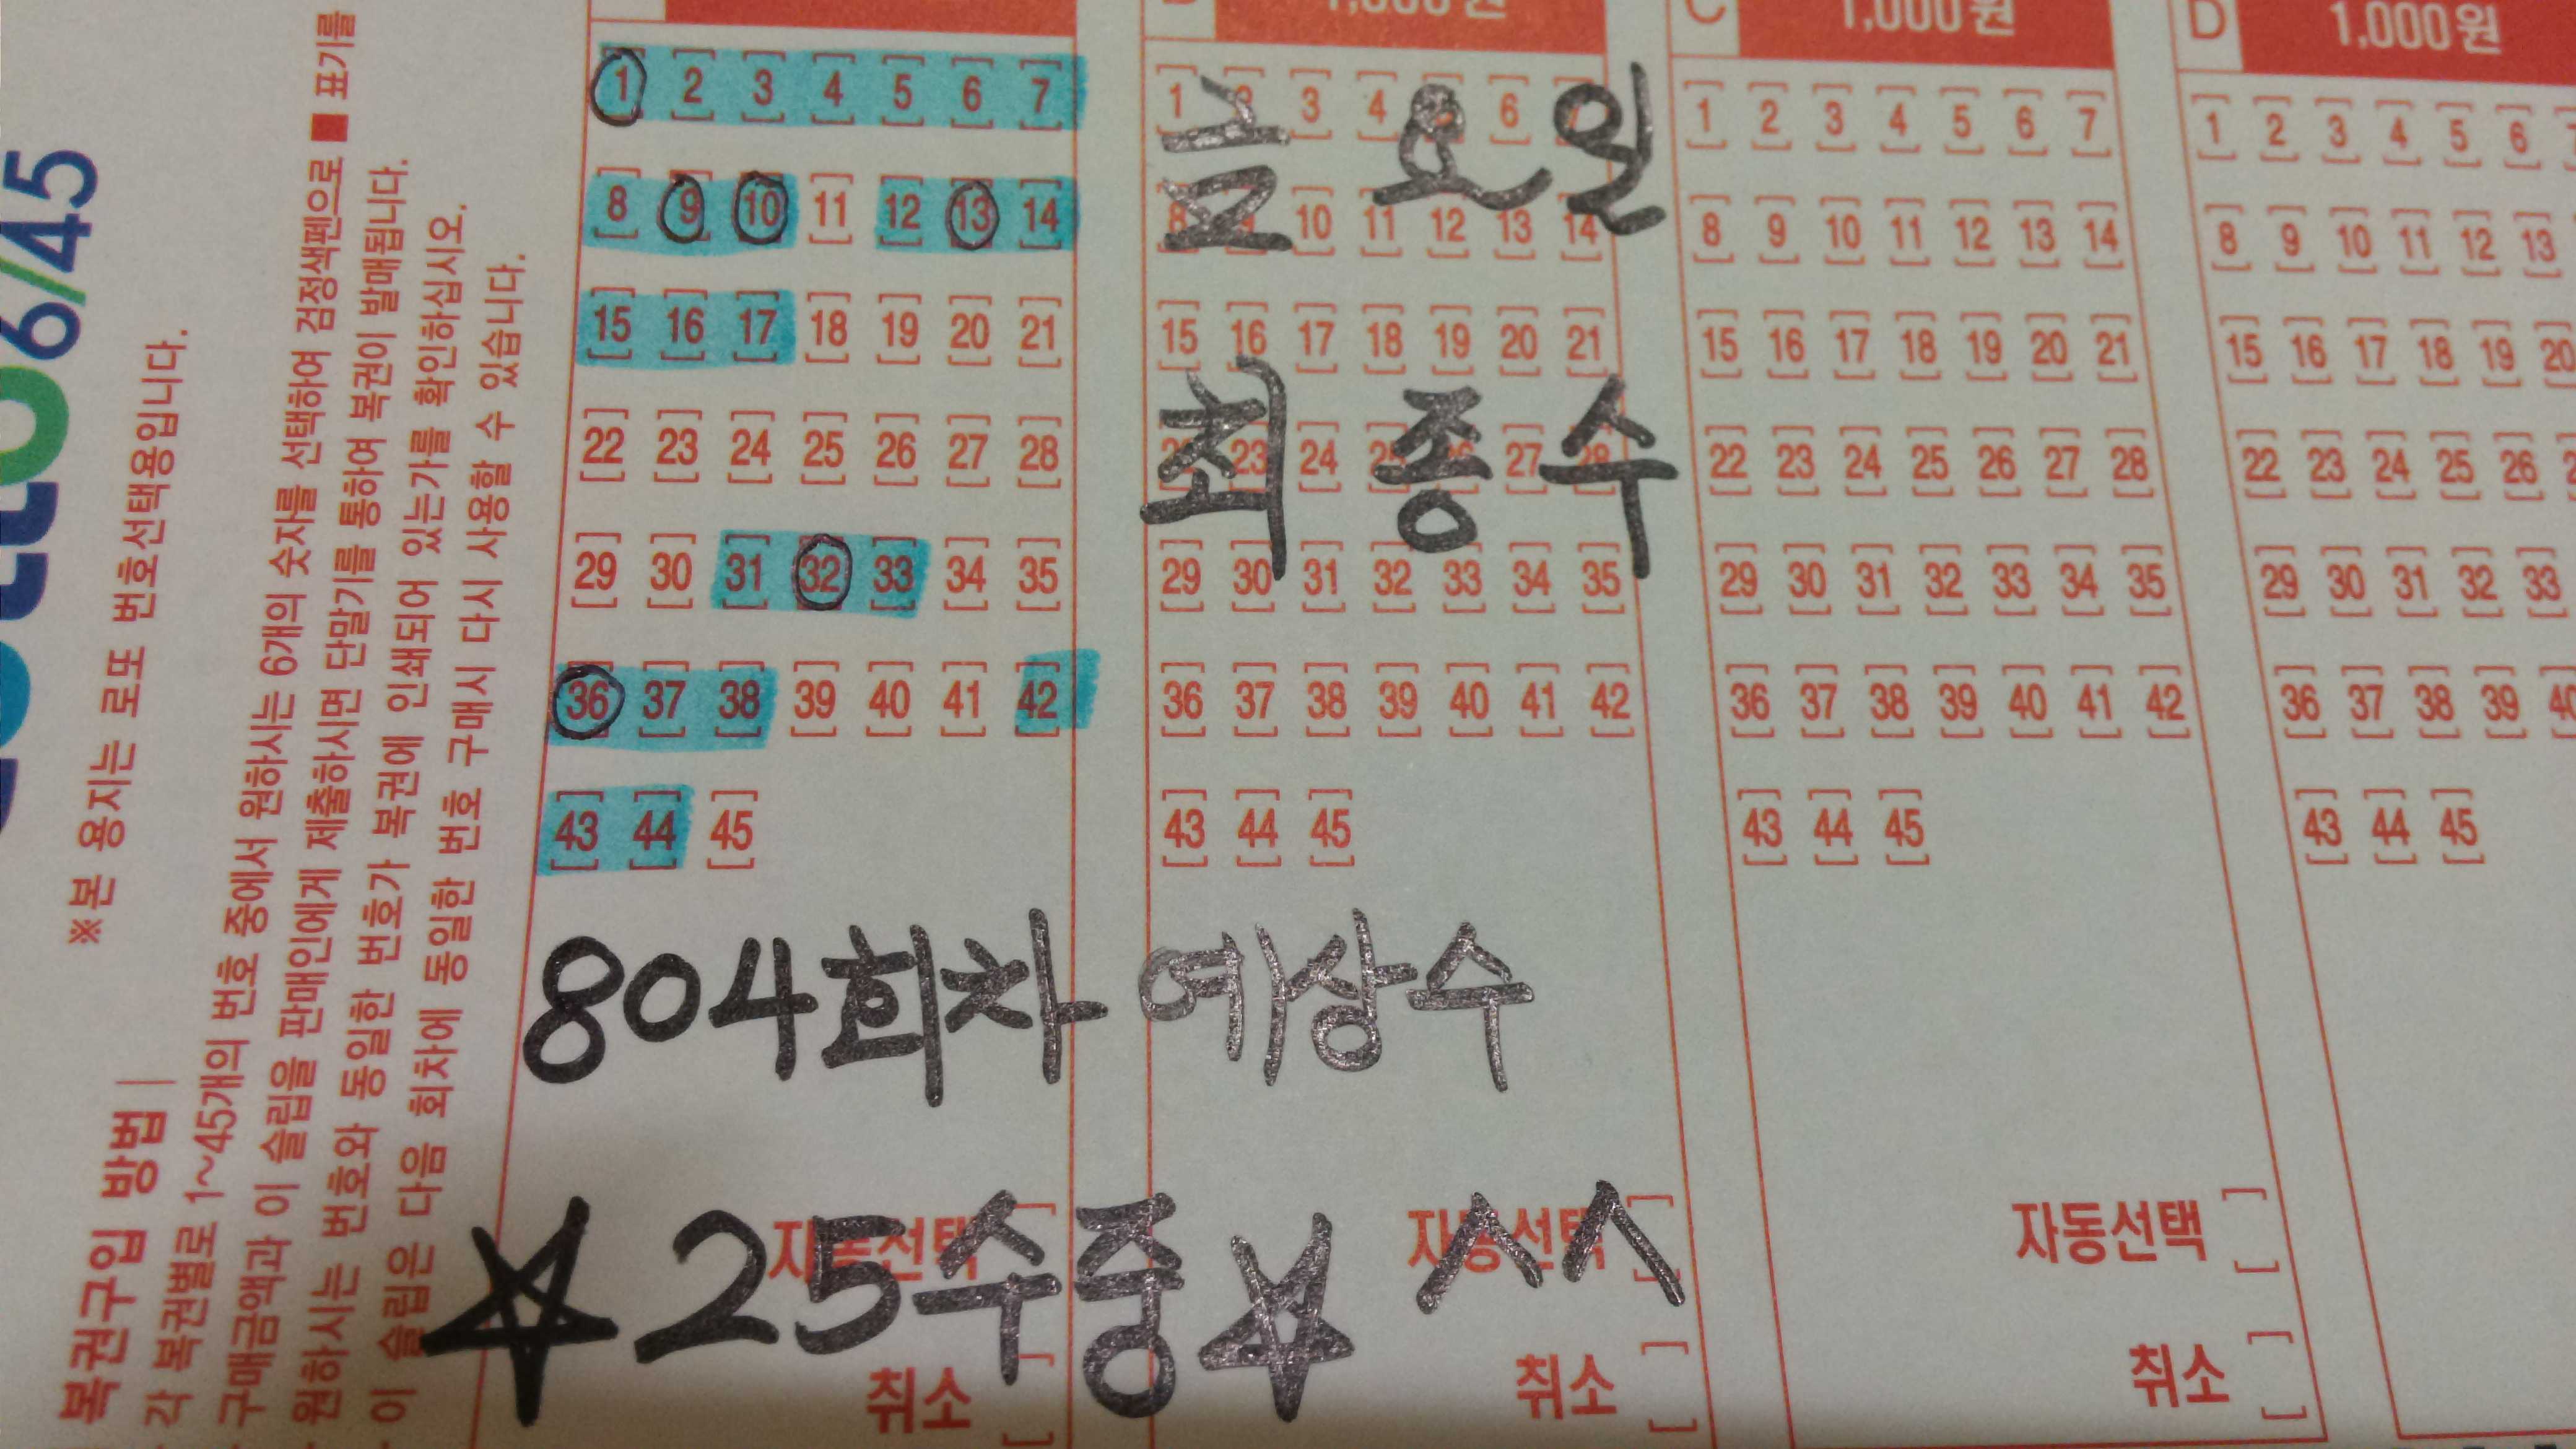 6/45
※본 용지는 로또 번호선택용입니다.
복권구입 방법
각 복권별로 1~45개의 번호 중에서 원하시는 6개의 숫자를 선택하여 검정색펜으로 ■ 표기를
구매금액과 이 슬립을 판매인에게 제출하시면 단말기를 통하여 복권이 발매됩니다.
원하시는 번호와 동일한 번호가 복권에 인쇄되어 있는가를 확인하십시오.
이 슬립은 다음 회차에 동일한 번호 구매시 다시 사용할 수 있습니다.
1 2 3 4 5 6 7
8 9 10 11 12 13 14
15 16 17 18 19 20 21
22 23 24 25 26 27 28
29 30 31 32 33 34 35
36 37 38 39 40 41 42
43 44 45
1,000원
1 3 4 6
10 11 12 13 14
15 16 17 18 19 20 21
23 24 27
29 30 31 32 33 34 35
36 37 38 39 40 41 42
43 44 45
금요일
최종수
C 1,000원
1 2 3 4 5 6 7
8 9 10 11 12 13 14
15 16 17 18 19 20 21
22 23 24 25 26 27 28
29 30 31 32 33 34 35
36 37 38 39 40 41 42
43 44 45
D 1,000원
1 2 3 4 5 6
8 9 10 11 12 13
15 16 17 18 19 20
22 23 24 25 26
29 30 31 32 33
36 37 38 39
43 44 45
804회차 예상수
☆25수중☆ ^^
자동선택 자동선택 자동선택
취소 취소 취소